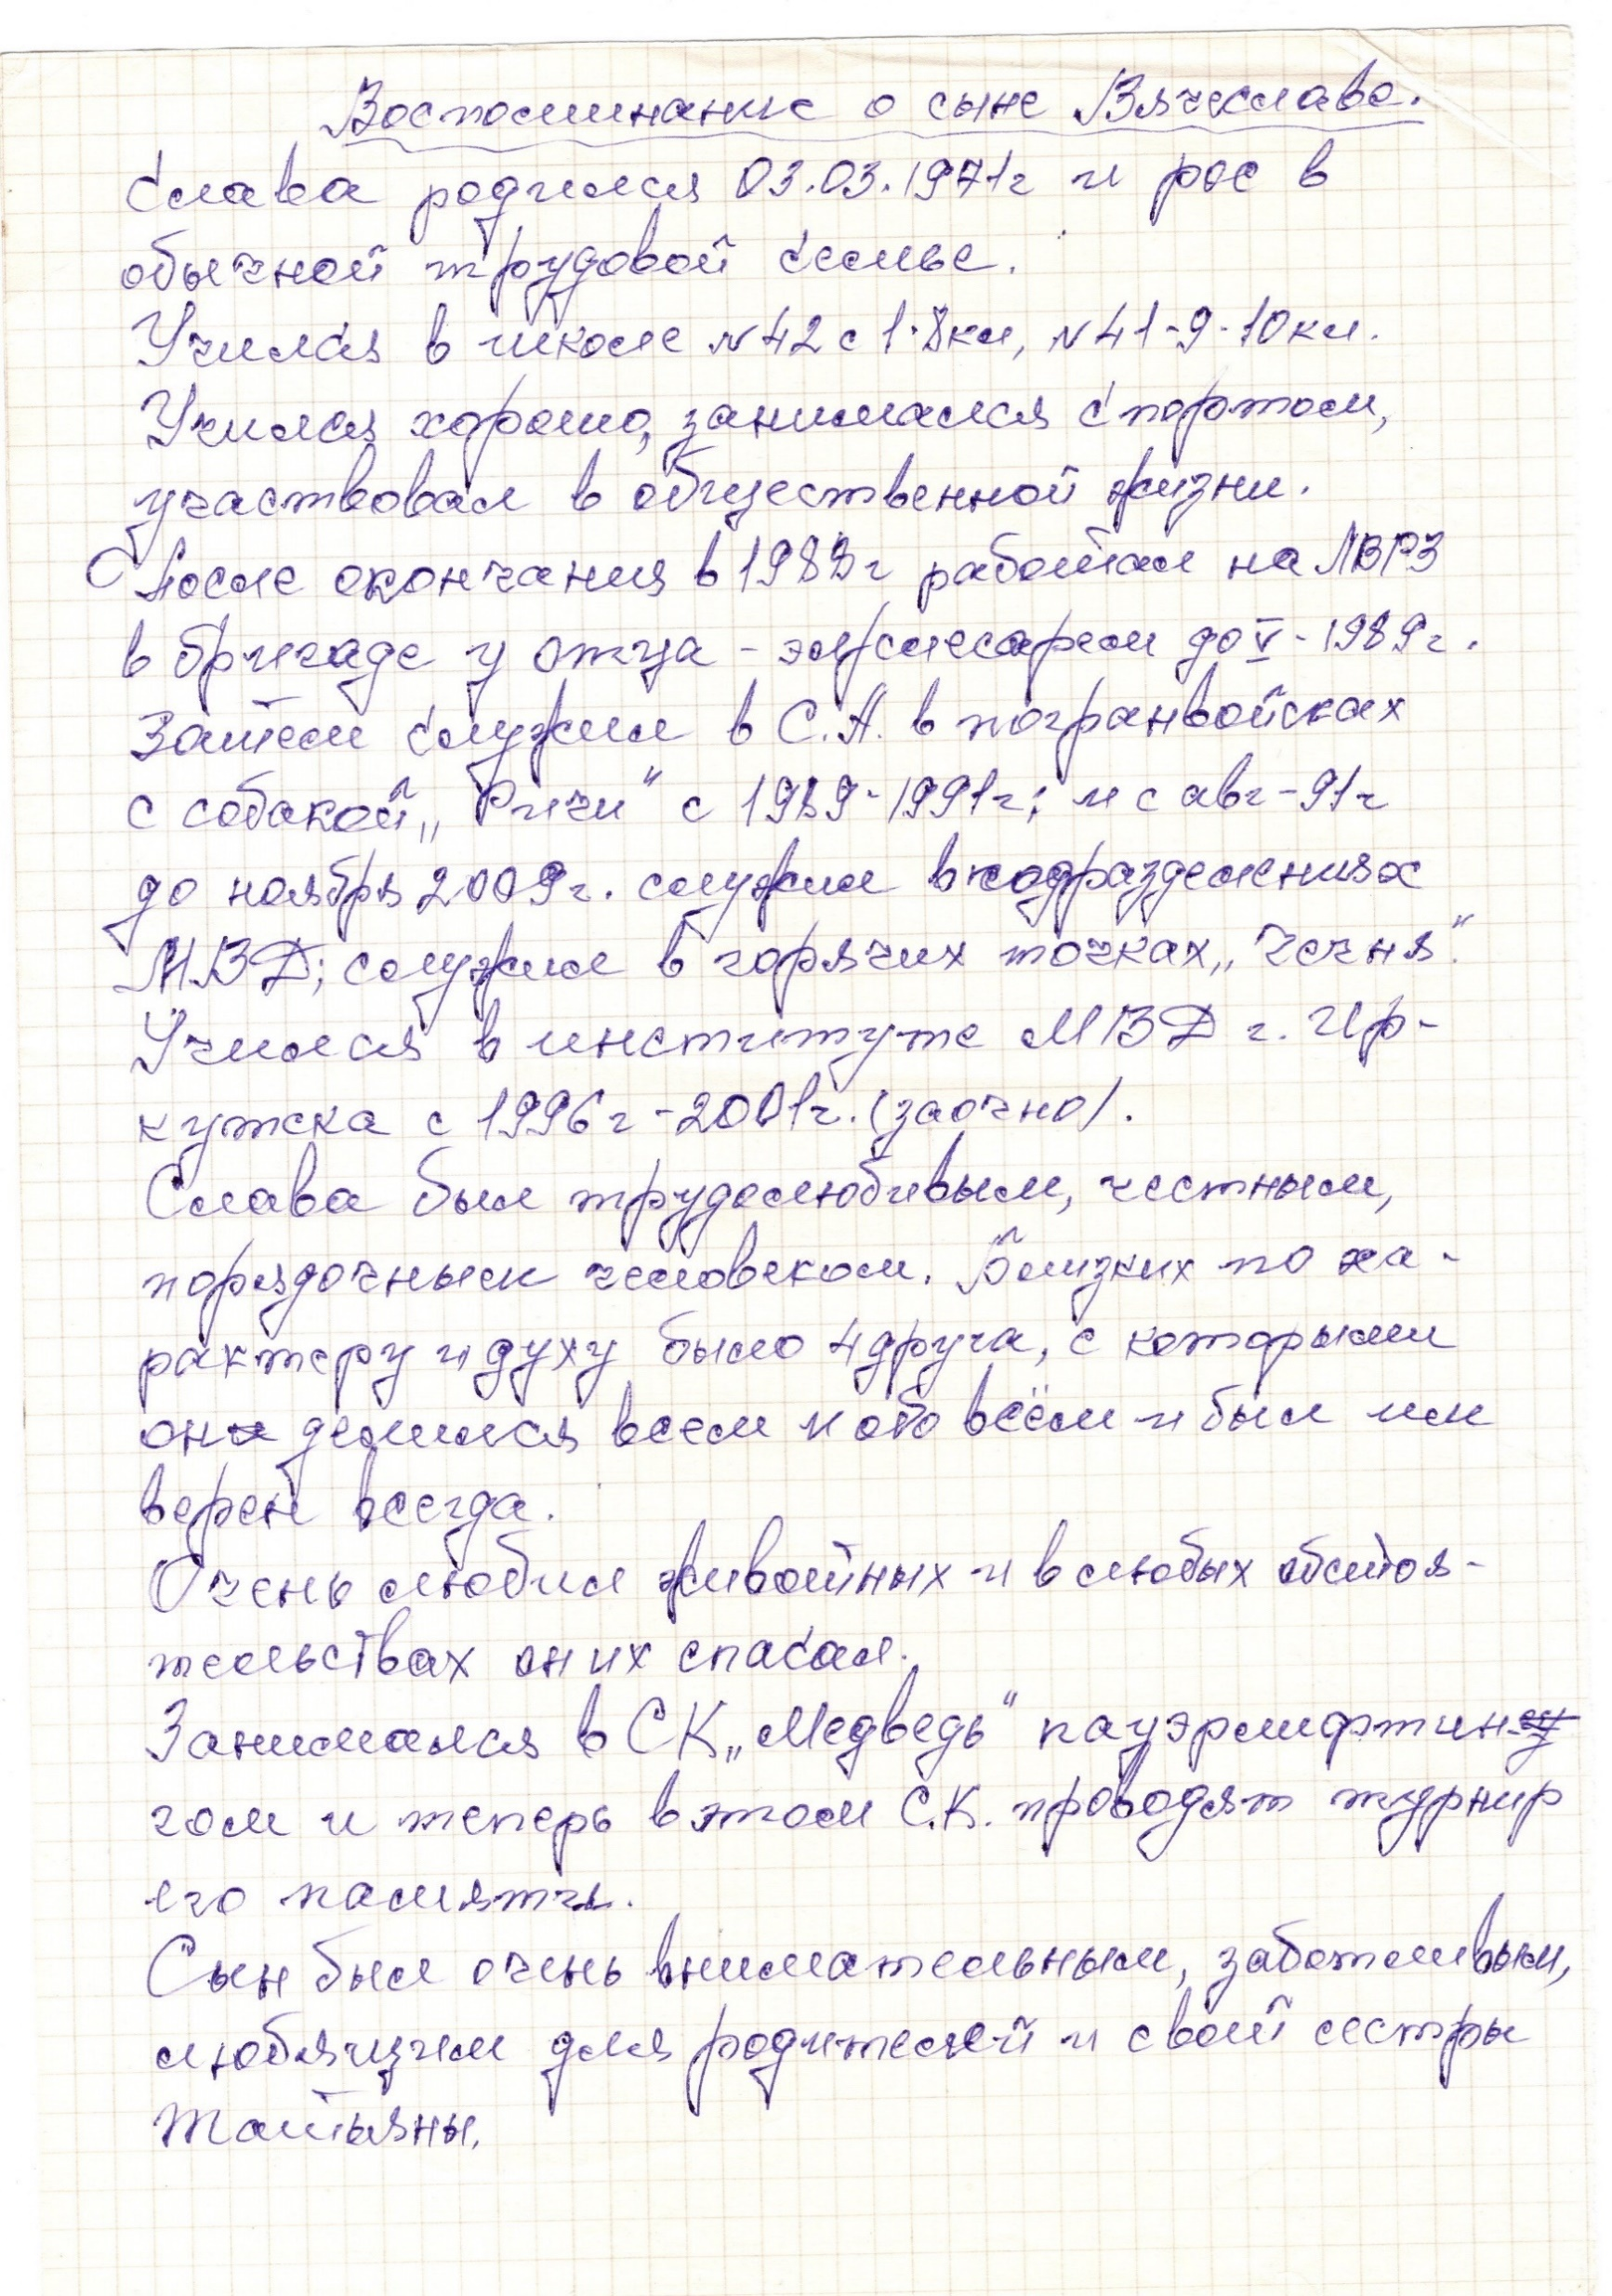 Воспоминание о сыне Вячеславе.
Слава родился 03.03.1971г и рос в
обычной трудовой семье.
Учился в школе №42 с 1-8кл, №41-9-10кл.
Учился хорошо, занимался спортом,
участвовал в общественной жизни.
После окончания в 1988г работал на ЛВРЗ
в бригаде у отца - эл/слесарем до V-1989г.
Затем служил в С.А. в погранвойсках
с собакой „Ричи" с 1989-1991г; и с авг-91г
до ноября 2009г. служил в подразделениях
МВД; служил в горячих точках „Чечня".
Учился в институте МВД г. Ир-
кутска с 1996г-2001г. (заочно).
Слава был трудолюбивым, честным,
порядочным человеком. Близких по ха-
рактеру и духу было 4 друга, с которыми
он делился всем и обо всём и был им
верен всегда.
Очень любил животных и в любых обстоя-
тельствах он их спасал.
Занимался в СК „Медведь" пауэрлифтин
гом и теперь в этом С.К. проводят турнир
его памяти.
Сын был очень внимательным, заботливым,
любящим для родителей и своей сестры
Татьяны.